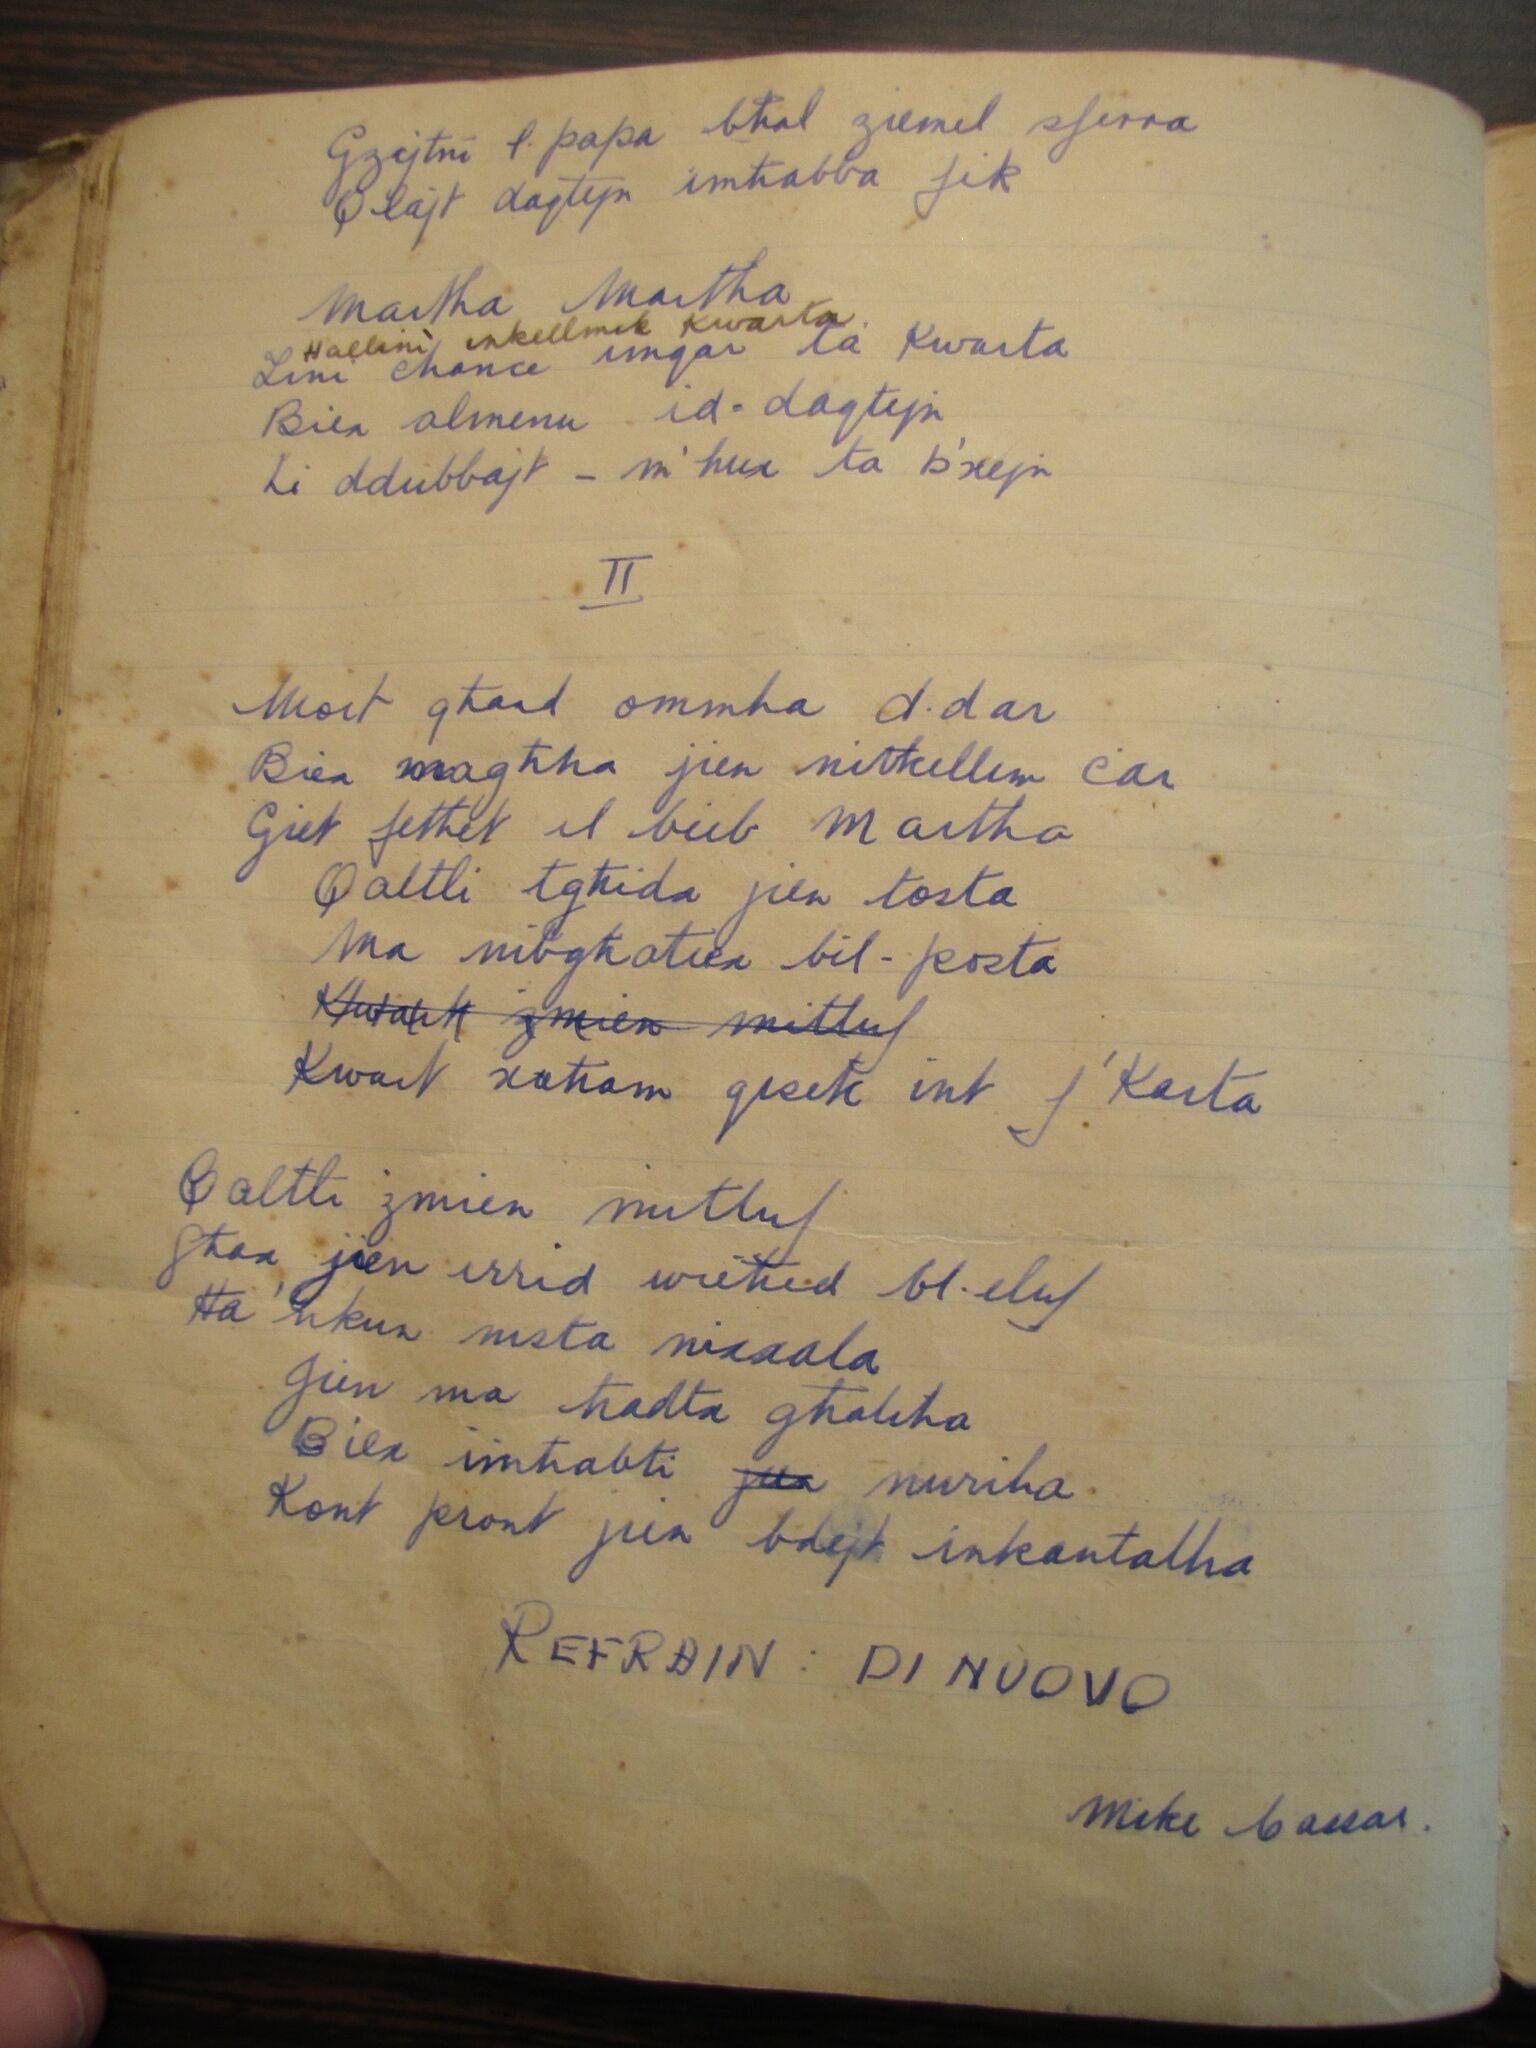 Gzejtni l. papa bħal ziemel sferra
Qlajt daqtejn imħabba fik
Martha Martha
Ħallini inkellmek Kwarta
Zini chance imqar ta Kwarta
Biex almenu id-daqtejn
Li ddubbajt - m'hux ta b'xejn
II
Mort għand ommha d.dar
Biex magħha jien nitkellem ċar
Giet fetħet il bieb Martha
Qaltli tgħida jien tosta
Ma nibgħatux bil-posta
żmien mitluf
Kwart xaħam qisek int f'Karta
Qaltli żmien mitluf
Għax jien irrid wieħed bl-eluf
Ħa nkun nista nixxala
Jien ma ħadtx għaliha
Biex imħabti jien nuriha
Kont pront jien bdejt inkantalha
REFRAIN: DI NUOVO
Mike Cassar.